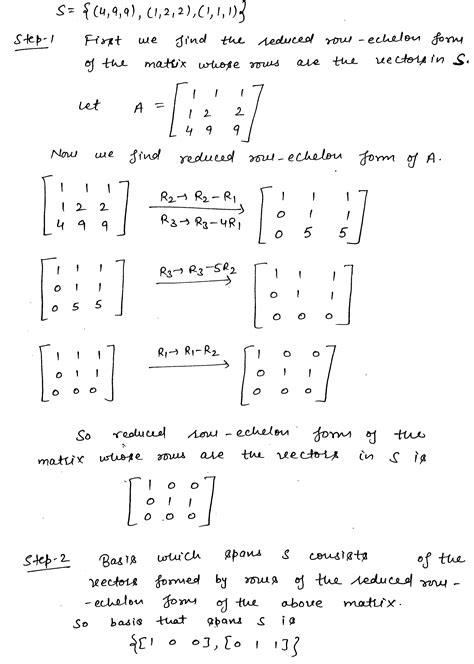 S = {(4,9,9), (1,2,2), (1,1,1)}
Step-1 First we find the reduced row-echelon form
of the matrix whose rows are the vectors in S.
Let A = [1 1 1
1 2 2
4 9 9]
Now we find reduced row-echelon form of A.
[1 1 1
1 2 2
4 9 9] R2→R2-R1
R3→R3-4R1 → [1 1 1
0 1 1
0 5 5]
[1 1 1
0 1 1
0 5 5] R3→R3-5R2 → [1 1 1
0 1 1
0 0 0]
[1 1 1
0 1 1
0 0 0] R1→R1-R2 → [1 0 0
0 1 1
0 0 0]
So reduced row-echelon form of the
matrix whose rows are the vectors in S is
[1 0 0
0 1 1
0 0 0]
Step-2 Basis which spans S consists of the
vectors formed by rows of the reduced row-
-echelon form of the above matrix.
So basis that spans S is
{[1 0 0], [0 1 1]}